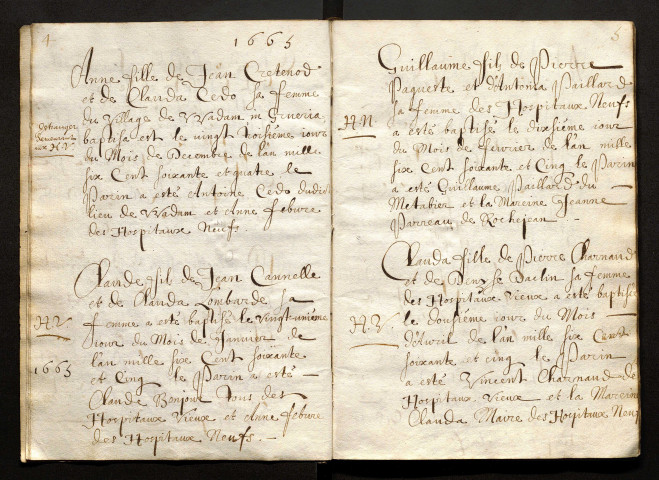 4
1665
Anne fille de Jean Cretenod
et de Clauda Cedo sa femme
du village de Vvadam
estranger
demeurant
aux H. V.
baptisa est le vingt troisiéme iour
du Mois de Decembre de l'an mille
six Cent soixante et quatre le
Parin a esté Antoine Cedo dudit
lieu de Vvadam et Anne febvre
des Hospitaux Neufs
Claude fils de Jean Cannelle
et de Clauda Lombarde sa
H. V.
femme a esté baptisé le vingt unieme
iour du Mois de Janvier de
1665
l'an mille six Cent soixante
et Cinq le Parin a esté —
Claude Bonjour tous des
Hospitaux Vieux et Anne febvre
des Hospitaux Neufs. —
5
Guillaume fils de Pierre
Paqueste et d'Antoina Paillard
sa femme des Hospitaux Neufs
H. N.
a estés baptisé le dixsiéme iour
du Mois de fevrier de l'an mille
six Cent soixante et Cinq le Parin
a esté Guillaume Paillard du
Motabier et la Mareine Jeanne
Parreau de Rochejean —
Clauda fille de Pierre Charnaud
et de Denyse Baclin sa femme
des Hospitaux Vieux a esté baptisée
H. V.
le dousiéme iour du Mois
d'Avril de l'an mille six Cent
soixante et cinq le Parin
a esté Vincent Charnaud de
Hospitaux Vieux et la Mareine
Clauda Maire des Hospitaux Neuf